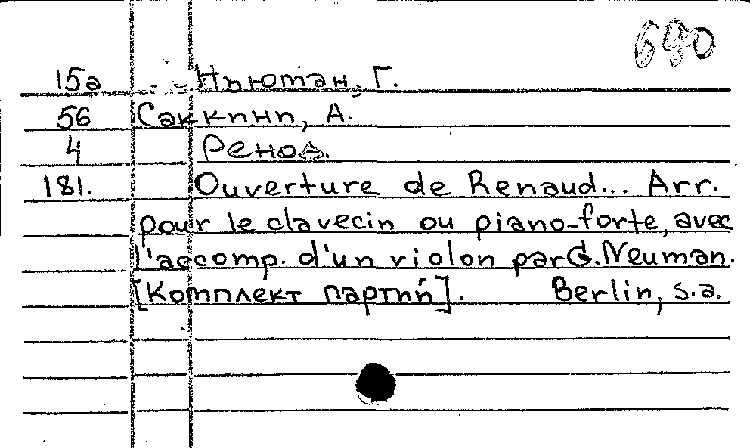 690
15a Ньюман, Г.
56 Саккини, А.
4 Рено.
181. Ouverture de Renaud... Arr.
pour le clavecin ou piano-forte, avec
l'accomp. d'un violon par G. Neuman.
[Комплект партий]. Berlin, s.a.